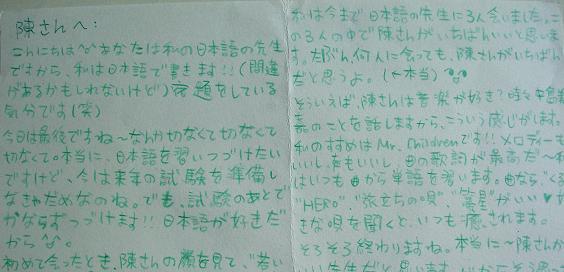 陳さんへ:
こんにちは^^あなたは私の日本語の先生
ですから、私は日本語で書きます!!(間違
があるかもしれないけど)宿題をしている
気分です(笑)
今日は最後ですね～なんか切なくて切なくて
切なくて。本当に、日本語を習いつづけたい
ですけど、今は来年の試験を準備し
なきゃだめなのね。でも、試験のあとで
かならずつづけます!!日本語が好きだ
から
初めて会ったとき、陳さんの顔を見て、"若い
私は今まで日本語の先生に3人会いました。こ
の3人の中で陳さんがいちばんいいと思いま
す。たぶん、何人に会っても、陳さんがいちばん
だと思うよ。(←本当)
そういえば、陳さんは音楽が好き?時々中島美
嘉のことを話しますから、こういう感じがします。
私のすすめはMr. Childrenです!!メロディーも
いいし、をもいいし、曲の歌詞が最高だ～私
はいつも曲から単語を習います。曲なら"くる
"HERO"、"旅立ちの唄"、"箒星"がいい♥
きな唄を聞くと、いつも癒されます。
そろそろ終わりますね。本当に～陳さんが
いい先生だと思います